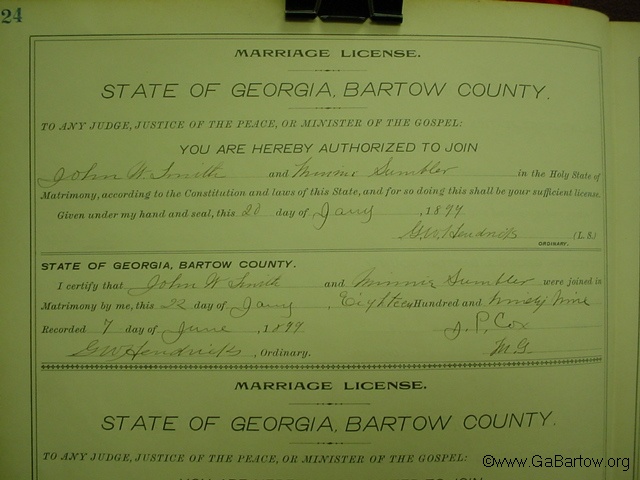 24
MARRIAGE LICENSE.
STATE OF GEORGIA, BARTOW COUNTY.
TO ANY JUDGE, JUSTICE OF THE PEACE, OR MINISTER OF THE GOSPEL:
YOU ARE HEREBY AUTHORIZED TO JOIN
John W. Smith and Minnie Sumbler in the Holy State of
Matrimony, according to the Constitution and laws of this State, and for so doing this shall be your sufficient license.
Given under my hand and seal, this 20 day of Jany , 1899
G.W. Hendricks (L. S.)
ORDINARY.
STATE OF GEORGIA, BARTOW COUNTY.
I certify that John W Smith and Minnie Sumbler were joined in
Matrimony by me, this 22 day of Jany , Eighteen Hundred and Ninety Nine
Recorded 7 day of June , 1899. J. P. Cox
GW Hendricks , Ordinary. M G
MARRIAGE LICENSE.
STATE OF GEORGIA, BARTOW COUNTY.
TO ANY JUDGE, JUSTICE OF THE PEACE, OR MINISTER OF THE GOSPEL:
©www.GaBartow.org